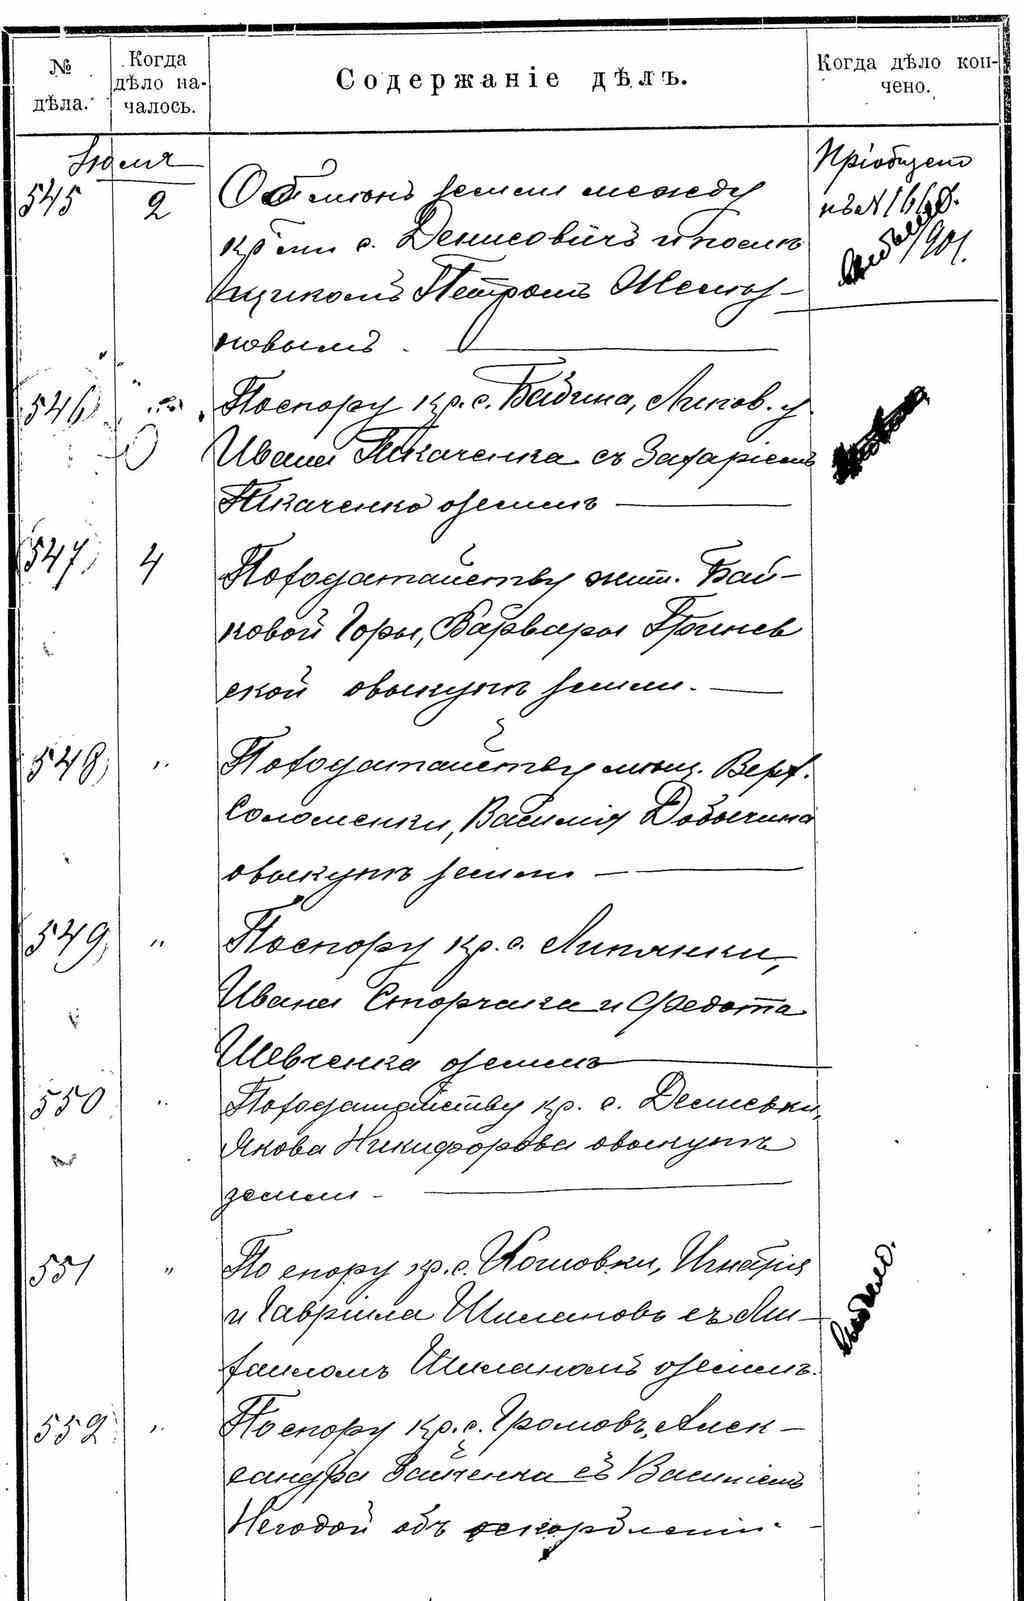 № дѣла.
Когда дѣло началось.
Содержаніе дѣлъ.
Когда дѣло кончено.
Іюля
545 2 Обмѣнъ земли между
кр-ми с. Денисовичъ и помѣ
щикомъ Петромъ
новымъ.
Пріобщено
къ №
1901.
546 По спору кр. с. Бабина, Липов. у.
Ивана Ткаченка съ Захаріемъ
Ткаченко о землѣ
547 4 По ходатайству жит. Бай-
ковой Горы, Варвары Гринев
ской о выкупѣ земли.
548 " По ходатайству мѣщ. Верх.
Соломенки, Василія Добычина
о выкупѣ земли
549 " По спору кр. с. Липянки,
Ивана Сторчака и Федота
Шевченка о землѣ
550 " По ходатайству кр. с. Демиевки,
Якова Никифорова о выкупѣ
земли -
551 " По спору кр. с. Кошовки, Игнатія
и Гавріила Шиманов съ Ми-
хаиломъ Шиманомъ о землѣ.
552 " По спору кр. с. Громовъ, Алек-
сандра Зайченка съ Василіемъ
Негодой объ оскорбленіи.